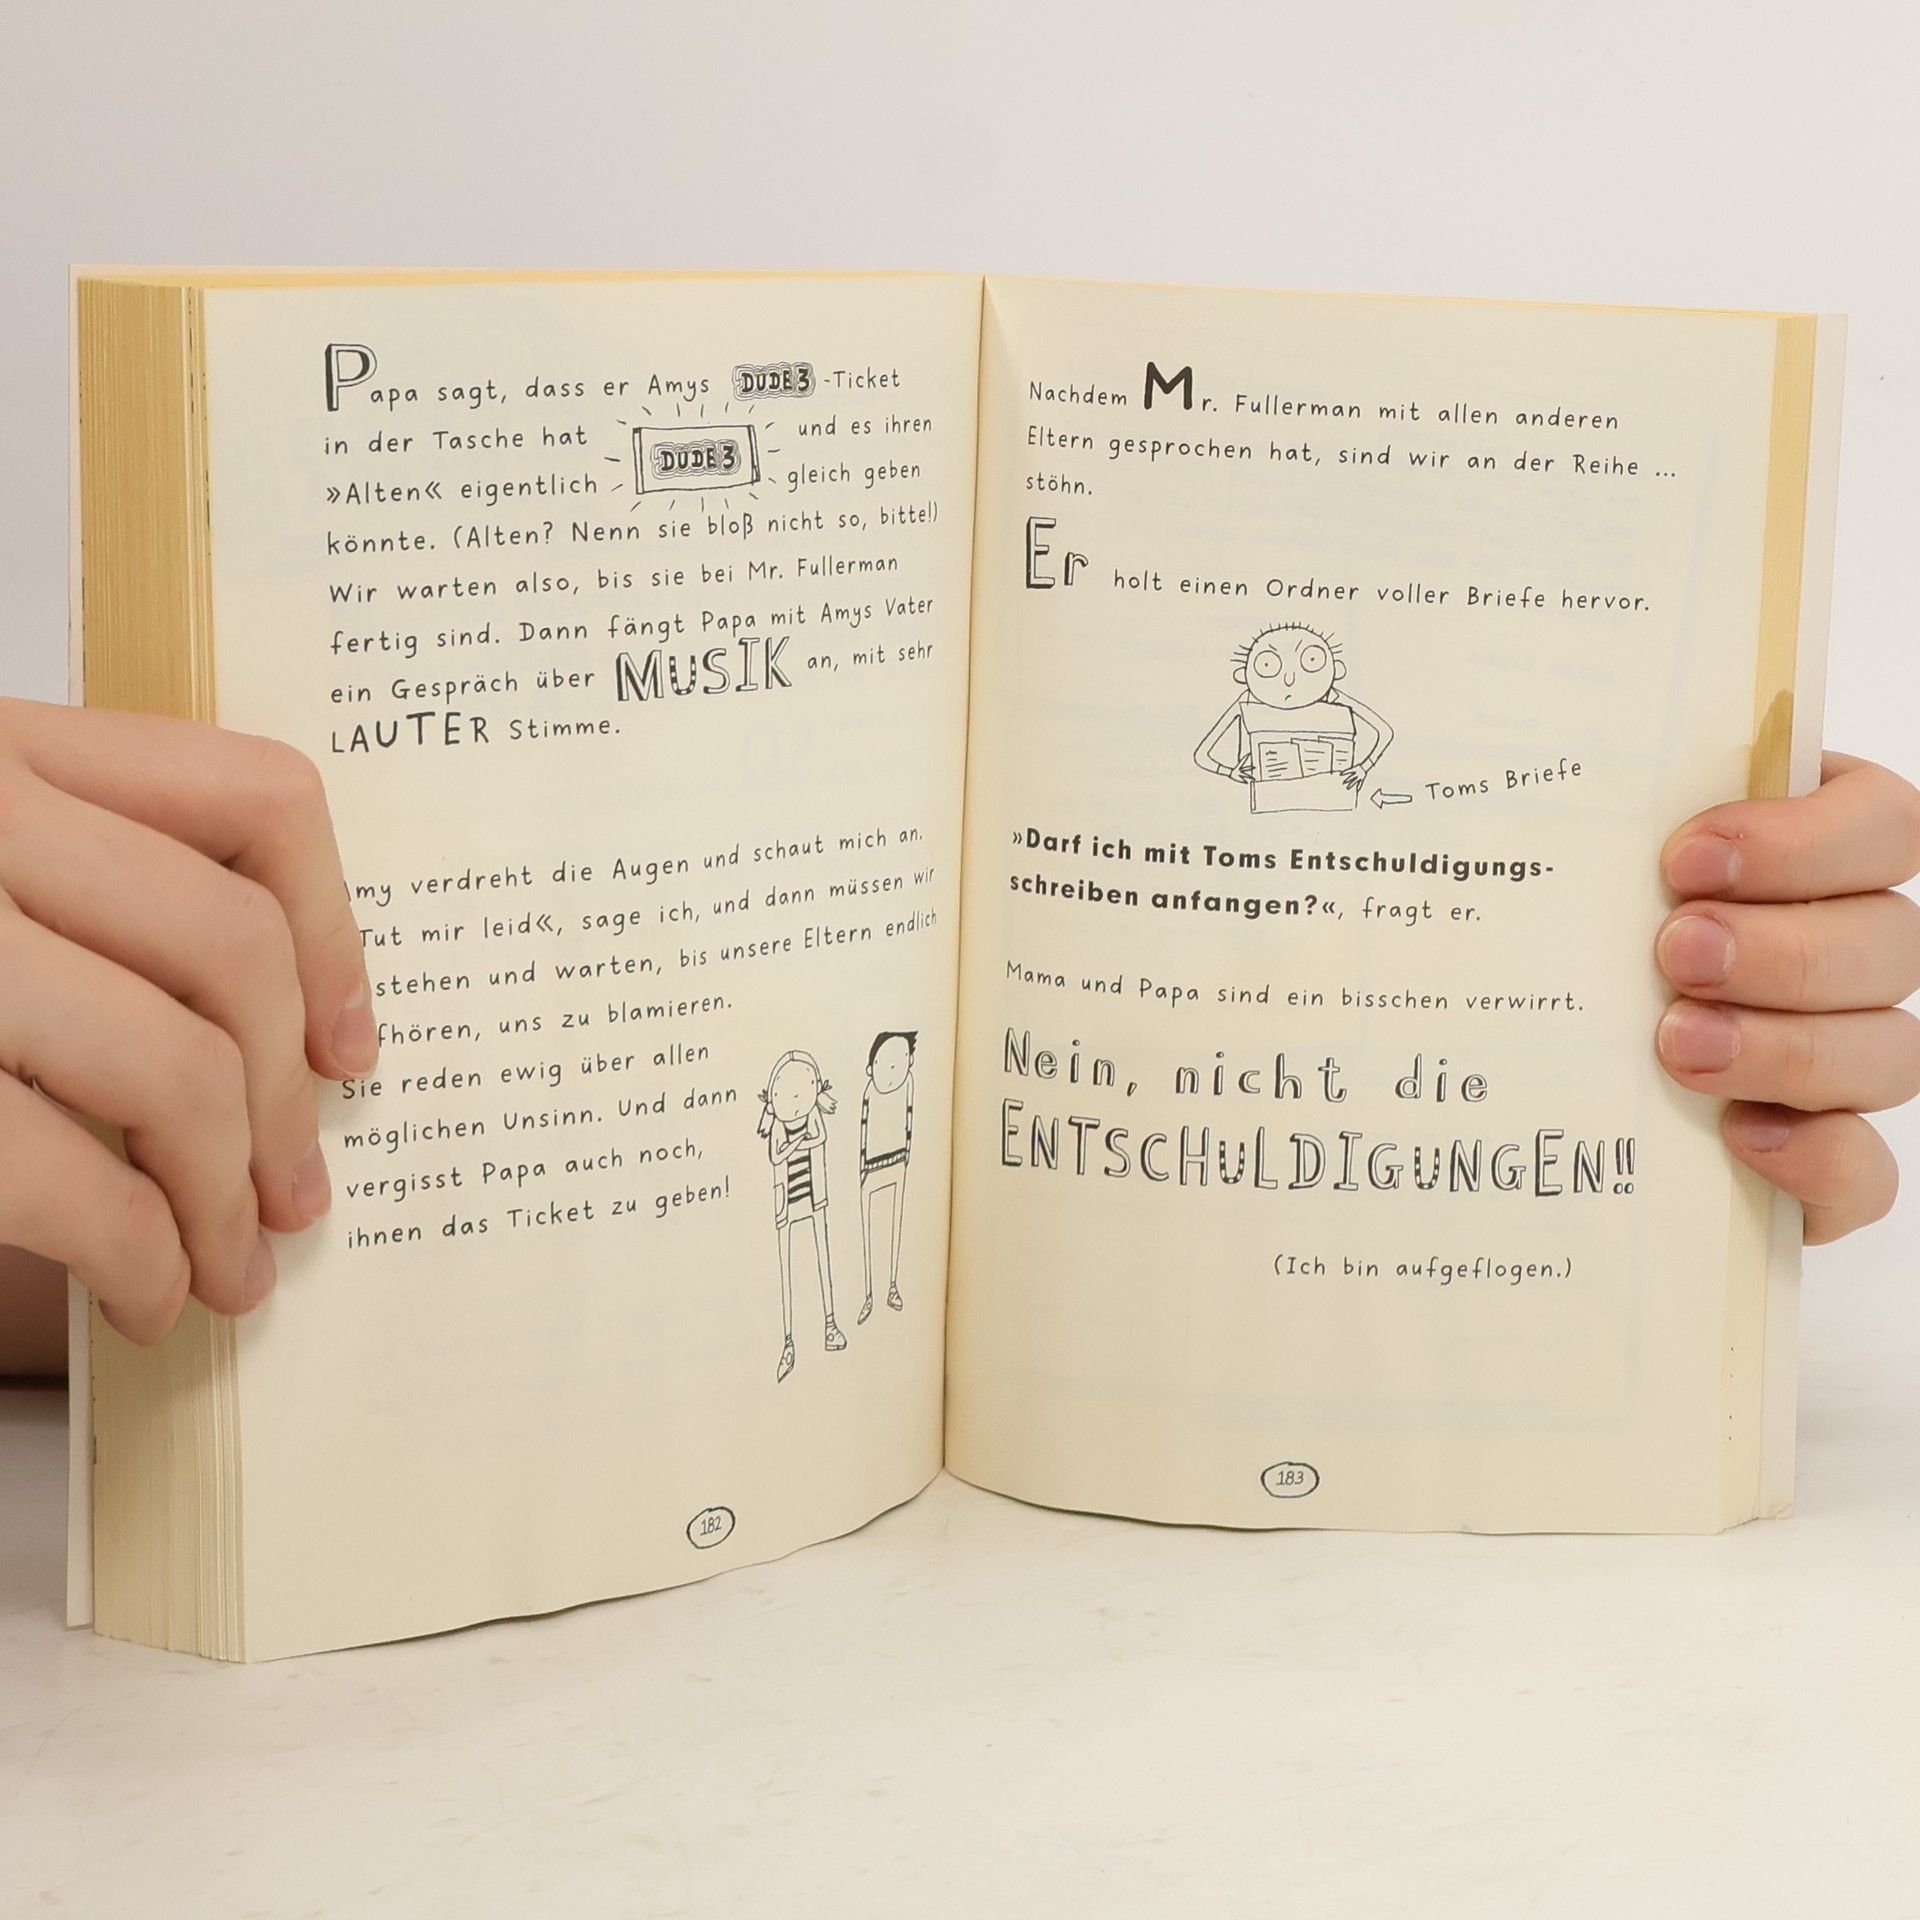 Papa sagt, dass er Amys DUDE3-Ticket
in der Tasche hat und es ihren
DUDE3
»Alten« eigentlich gleich geben
könnte. (Alten? Nenn sie bloß nicht so, bitte!)
Wir warten also, bis sie bei Mr. Fullerman
fertig sind. Dann fängt Papa mit Amys Vater
ein Gespräch über MUSIK an, mit sehr
LAUTER Stimme.
my verdreht die Augen und schaut mich an.
Tut mir leid«, sage ich, und dann müssen wir
stehen und warten, bis unsere Eltern endlich
fhören, uns zu blamieren.
Sie reden ewig über allen
möglichen Unsinn. Und dann
vergisst Papa auch noch,
ihnen das Ticket zu geben!
182
Nachdem Mr. Fullerman mit allen anderen
Eltern gesprochen hat, sind wir an der Reihe ...
stöhn.
Er holt einen Ordner voller Briefe hervor.
Toms Briefe
»Darf ich mit Toms Entschuldigungs-
schreiben anfangen?«, fragt er.
Mama und Papa sind ein bisschen verwirrt.
Nein, nicht die
ENTSCHULDIGUNGEN!!
(Ich bin aufgeflogen.)
183